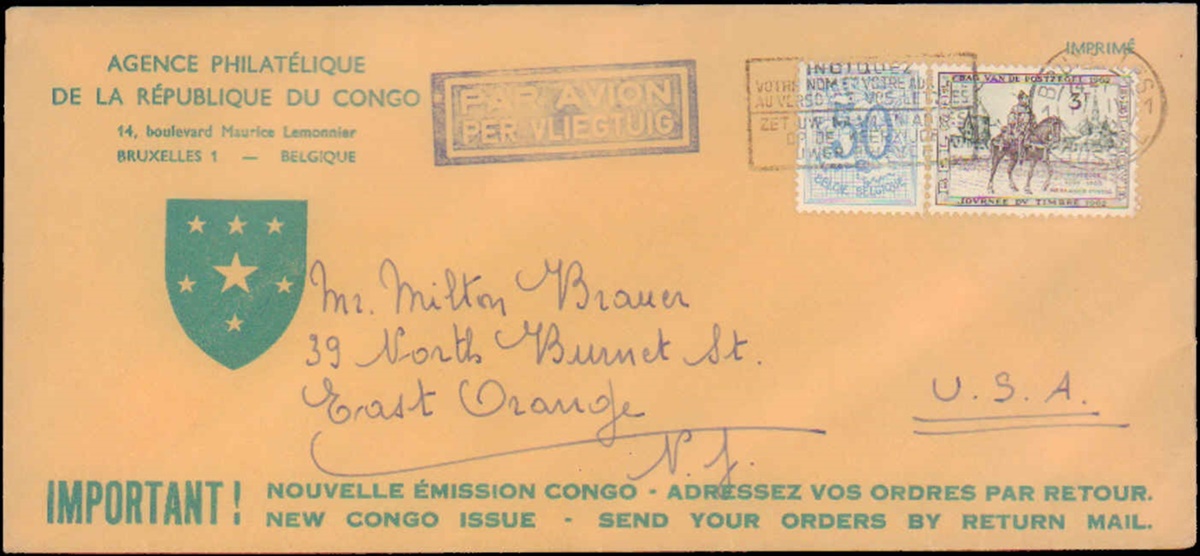 AGENCE PHILATÉLIQUE
DE LA RÉPUBLIQUE DU CONGO
14, boulevard Maurice Lemonnier
BRUXELLES 1 — BELGIQUE
PAR AVION
PER VLIEGTUIG
IMPRIMÉ
INDIQUEZ
VOTRE NOM ET VOTRE
AU VERSO DE VOS
ZET UW
OP DE
50
BELGIE-BELGIQUE
DAG VAN DE POSTZEGEL 1962
3F
JOURNÉE DU TIMBRE 1962
Mr. Milton Brauer
39 North Burnet St.
East Orange
N. J.
U. S. A.
IMPORTANT !
NOUVELLE ÉMISSION CONGO - ADRESSEZ VOS ORDRES PAR RETOUR.
NEW CONGO ISSUE - SEND YOUR ORDERS BY RETURN MAIL.